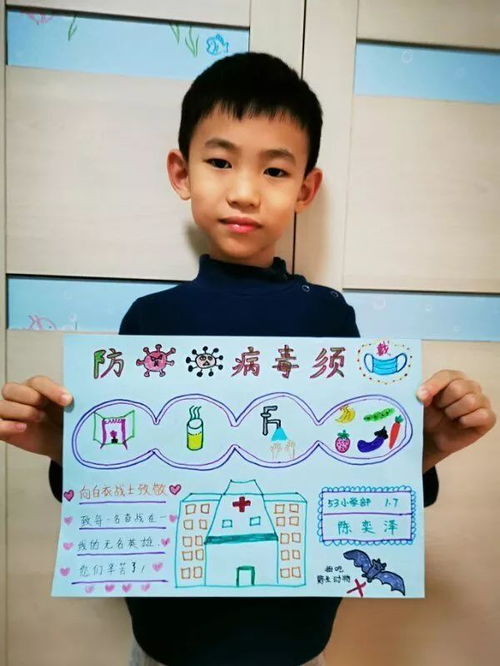 防 病毒须
戴
向白衣战士致敬
致每一名奋战在一
线的无名英雄，
您们辛苦了！
53小学部 1.7
陈奕泽
拒吃
野生动物